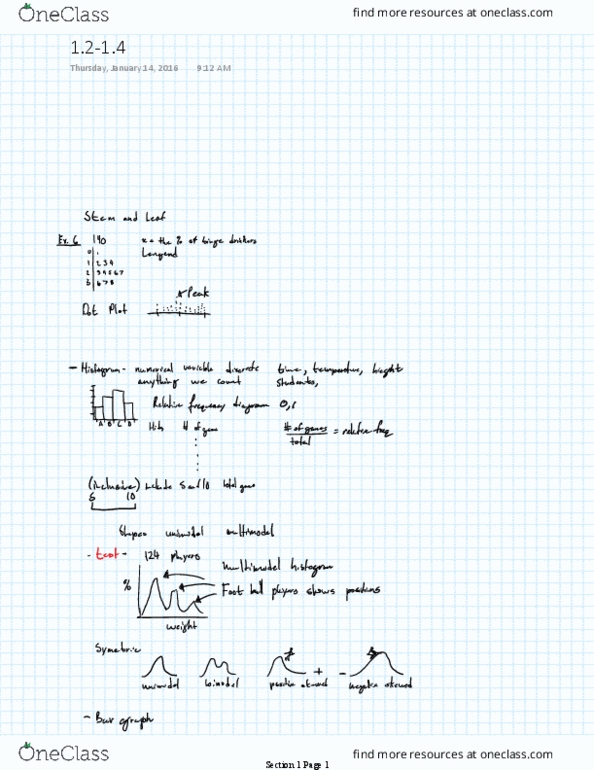 OneClass
find more resources at oneclass.com
1.2-1.4
Thursday, January 14, 2016 9:12 AM
Stem and Leaf
Ex. 6 140 x = the % of binge drinkers
0 | 1
1 | 2 3 4
2 | 3 4 5 6 7
3 | 6 7 8
Peak
Dot Plot
- Histogram - numerical variable discrete time, temperature, height
anything we count students,
A B C D
Relative frequency diagram 0,1
Hits # of game
# of games / total = relative freq
(inclusive) include 5 and 10 total game
5 10
Shapes unimodel multimodel
- test - 124 players
multimodel histogram
% Foot ball players shows positions
weight
Symetric
+ -
unimodel bimodel positive skewed negative skewed
- Bar graph
OneClass
find more resources at oneclass.com
Section 1 Page 1